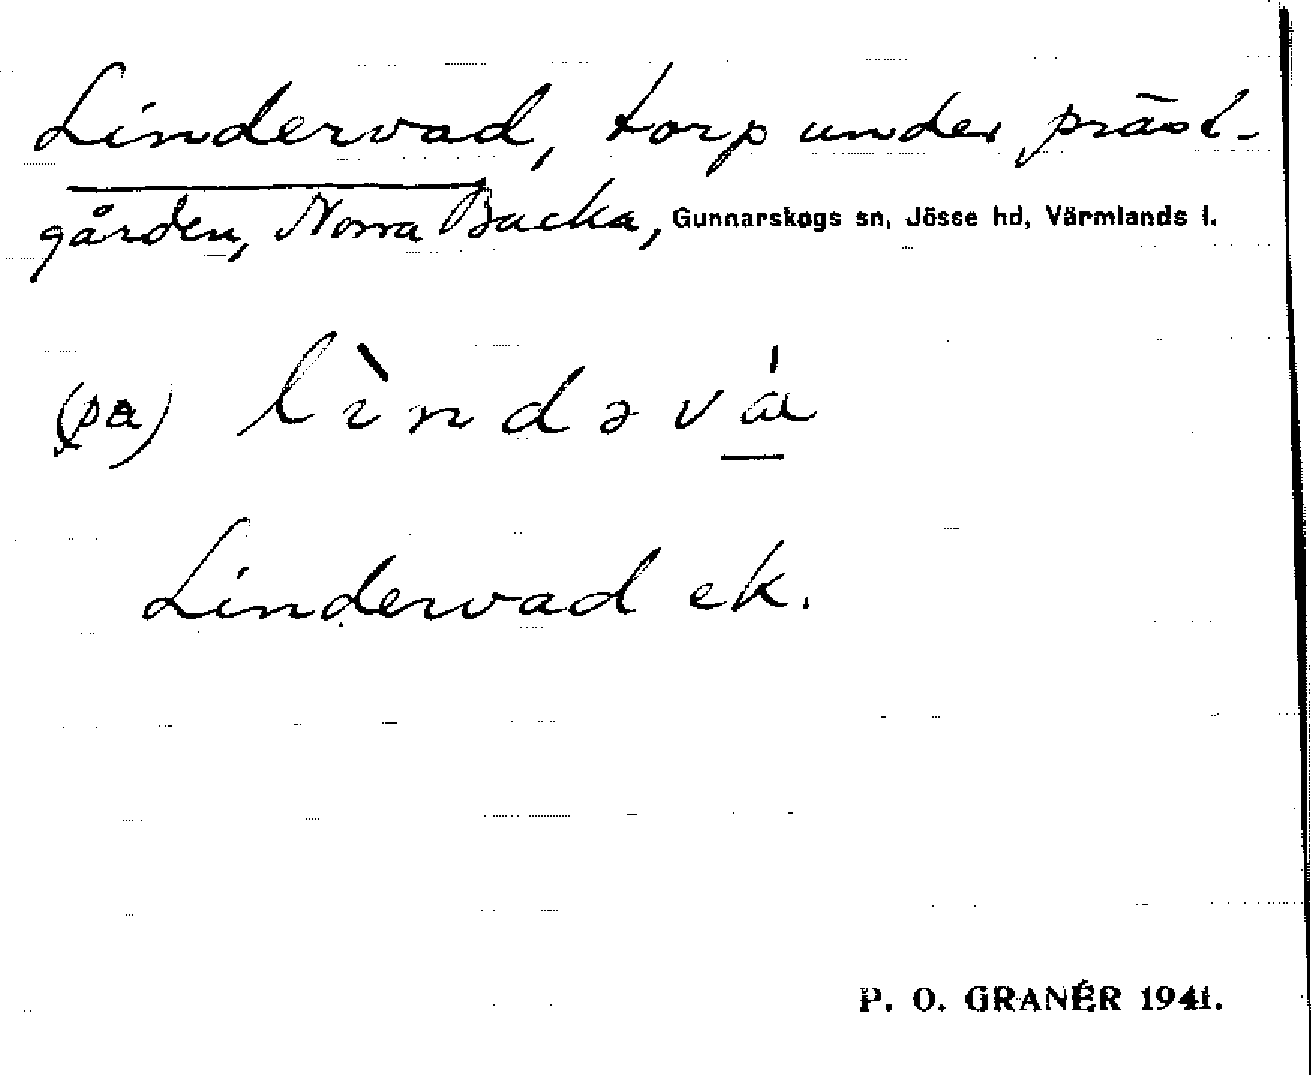 Lindervad, torp under präst-
gården, Norra Backa, Gunnarskogs sn, Jösse hd, Värmlands l.
(pa) lìndəvá
Lindervad ek.
P. O. GRANÉR 1941.